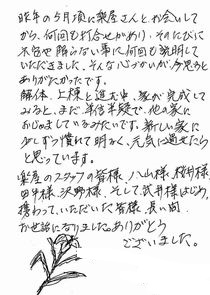 昨年の5月頃に楽屋さんと、お会いして
から、何回も打合せがあり、そのたびに
不安や解らない事に何回も説明して
いただきました、そんな心づかいが、今思うと
ありがたかったです。
解体、上棟と進む中、家が完成して
みると、まだ、半信半疑で、他の家に
おじゃましているみたいです。新しい家に
少しずつ慣れて明るく、元気に過せたら
と思っています。
楽屋のスタッフの皆様、八山様、桜井様、
田中様、沢野様、そして、武井様はじめ、
携わって、いただいた皆様、長い間
お世話になりました。ありがとう
ございました。